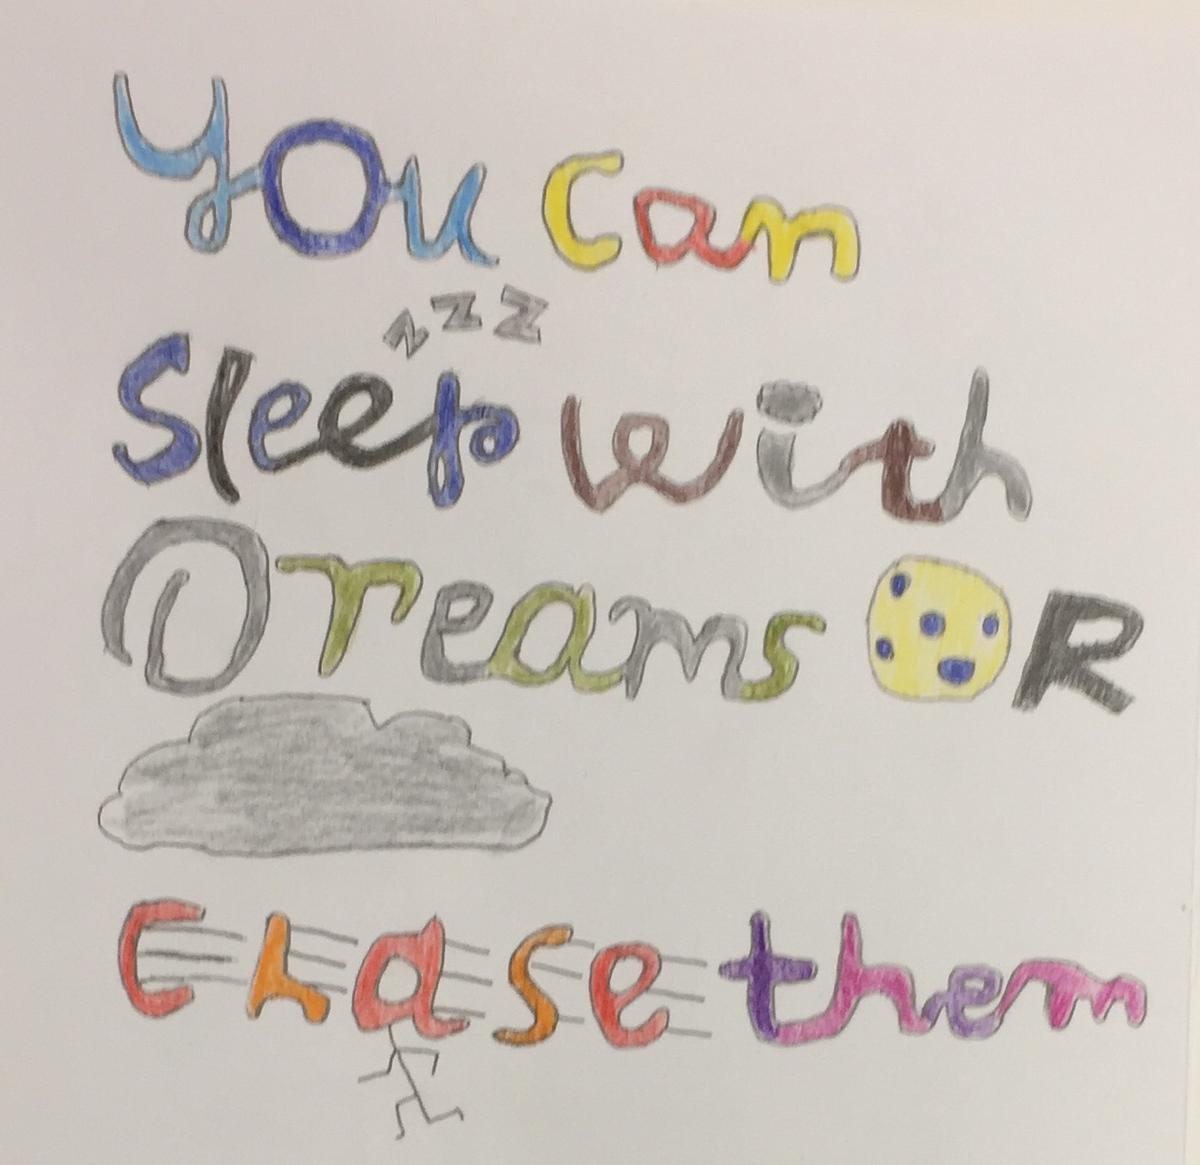 You can
zzz
Sleep with
Dreams OR
Chase them